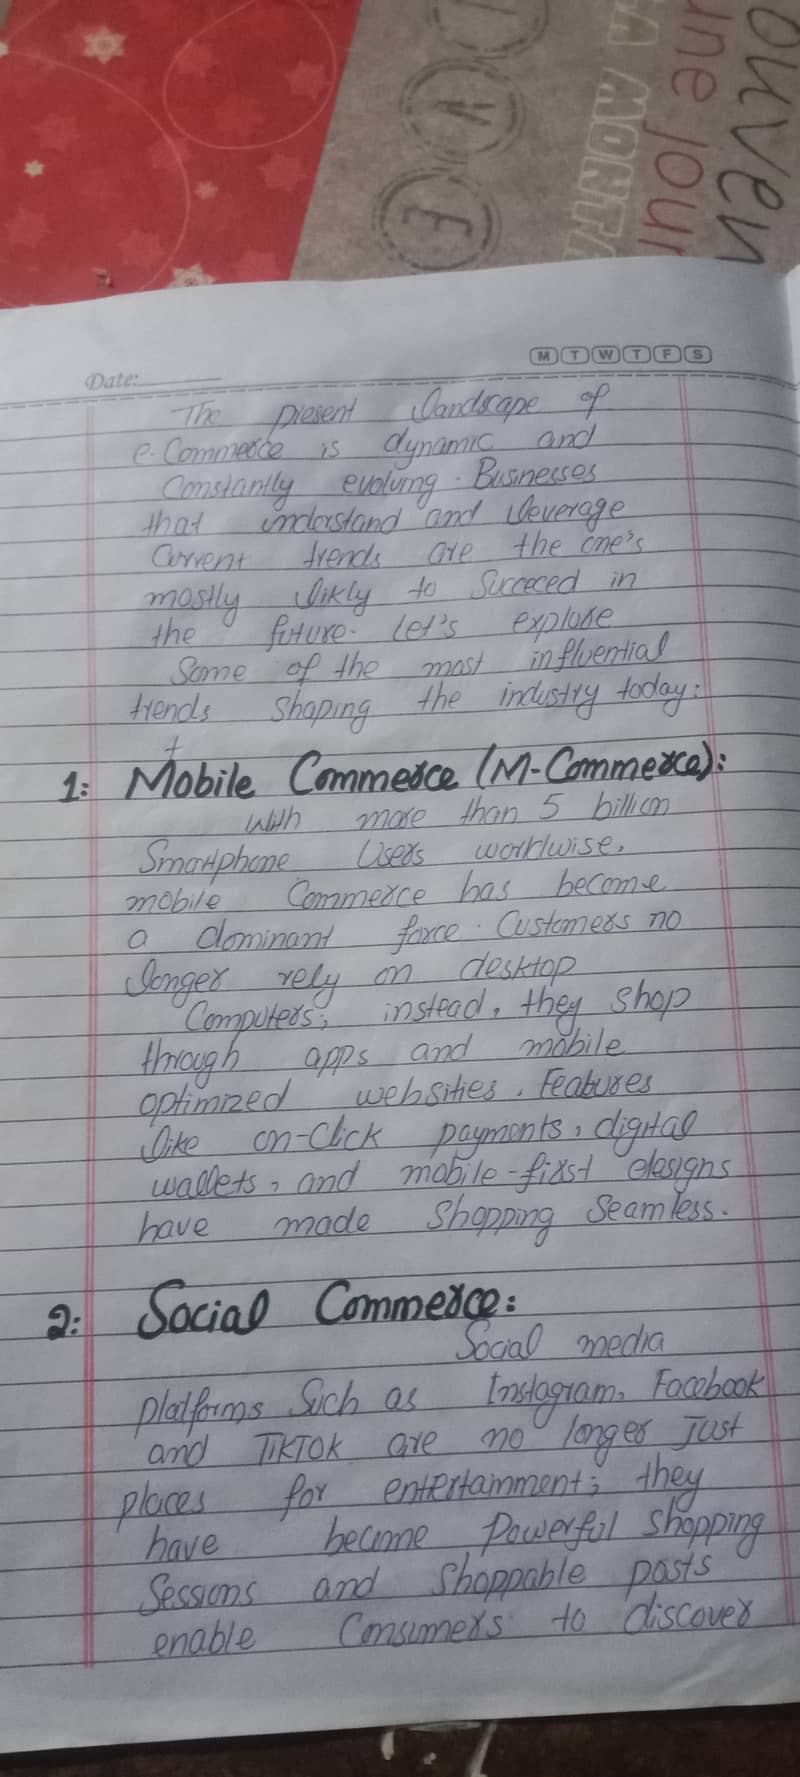 I V E
LA MONTA
une jour
ouven
M T W T F S
Date:
The present landscape of
e-Commerce is dynamic and
Constantly evolving. Businesses
that understand and leverage
Current trends are the one's
mostly likly to Succeed in
the future. Let's explore
Some of the most influential
trends Shaping the industry today:
1: Mobile Commerce (M-Commerce):
With more than 5 billion
Smartphone Users worrlwise,
mobile Commerce has become
a dominant force. Customers no
longer rely on desktop
Computers; instead, they shop
through apps and mobile
optimized websities. Features
like on-Click payments, digital
wallets, and mobile-first designs
have made Shopping Seamless.
2: Social Commerce:
Social media
platforms Such as Instagram, Facebook
and TikTOK are no longer Just
places for entertainment; they
have become Powerful Shopping
Sessions and Shoppable posts
enable Consumers to discover